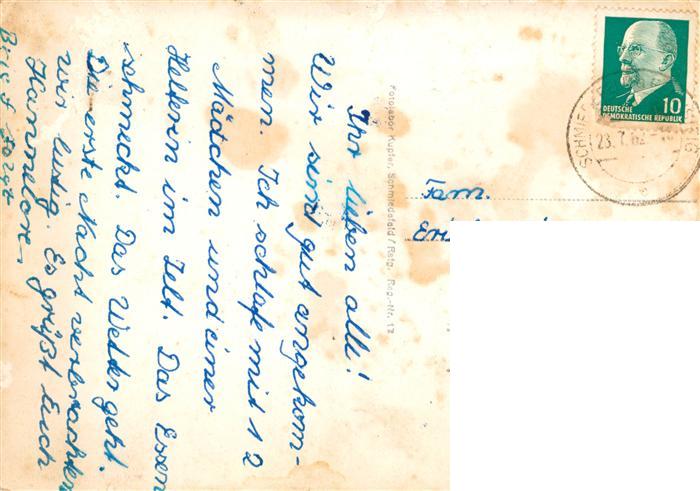 Ihr lieben alle!
Wir sind gut angekom-
men. Ich schlafe mit 12
Mädchen und einer
Helferin im Zelt. Das Essen
schmeckt. Das Wetter geht.
Die erste Nacht verbrachten
wir lustig. Es grüßt Euch
Hannelore.
Brief folgt
Fotolabor Kupfer, Schmiedefeld / Rstg. Reg-Nr. 12
DEUTSCHE 10
DEMOKRATISCHE REPUBLIK
23.7.
Fam.